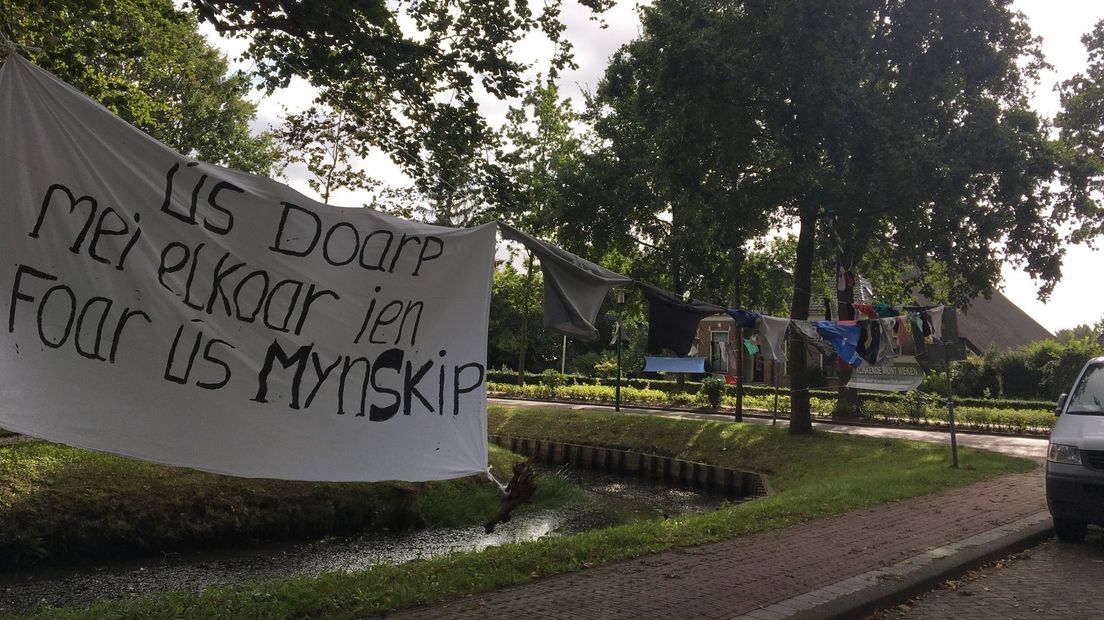 Ús Doarp
Mei elkoar ien
Foar ús Mynskip
KLINKENDE MUNT WEKEN